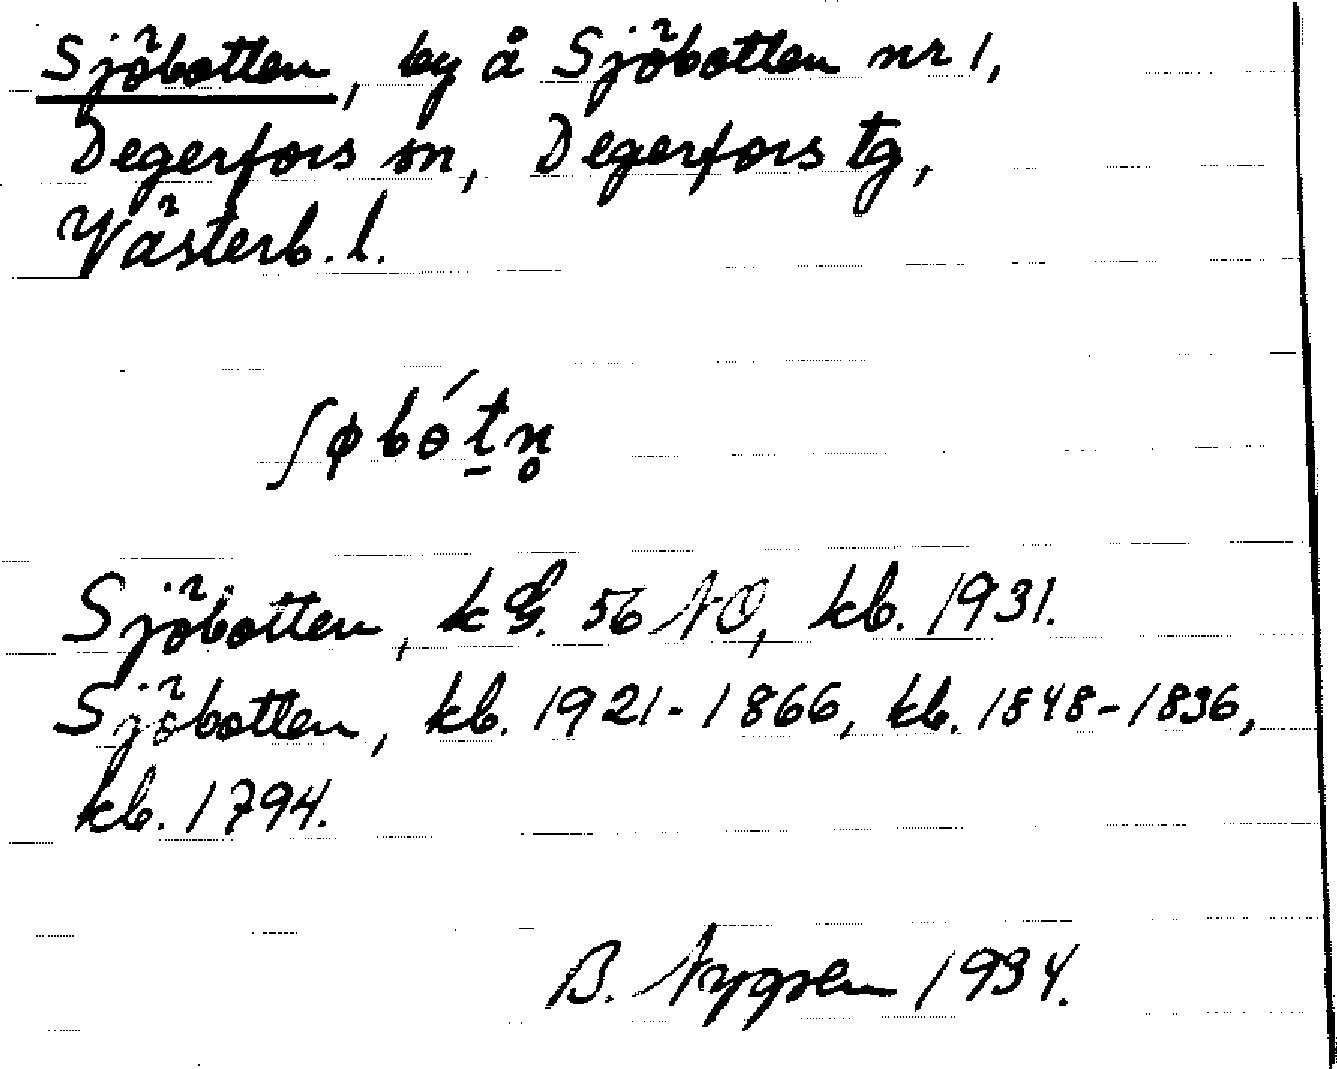 Sjöbotten, by å Sjöbotten nr 1,
Degerfors sn, Degerfors tg,
Västerb. l.
ʃøbɵ́t̠n̥
Sjöbotten, k G. 56 NO, kb. 1931.
Sjöbotten, kb. 1921-1866, kb. 1848-1836,
kb. 1794.
B. Nygren 1934.